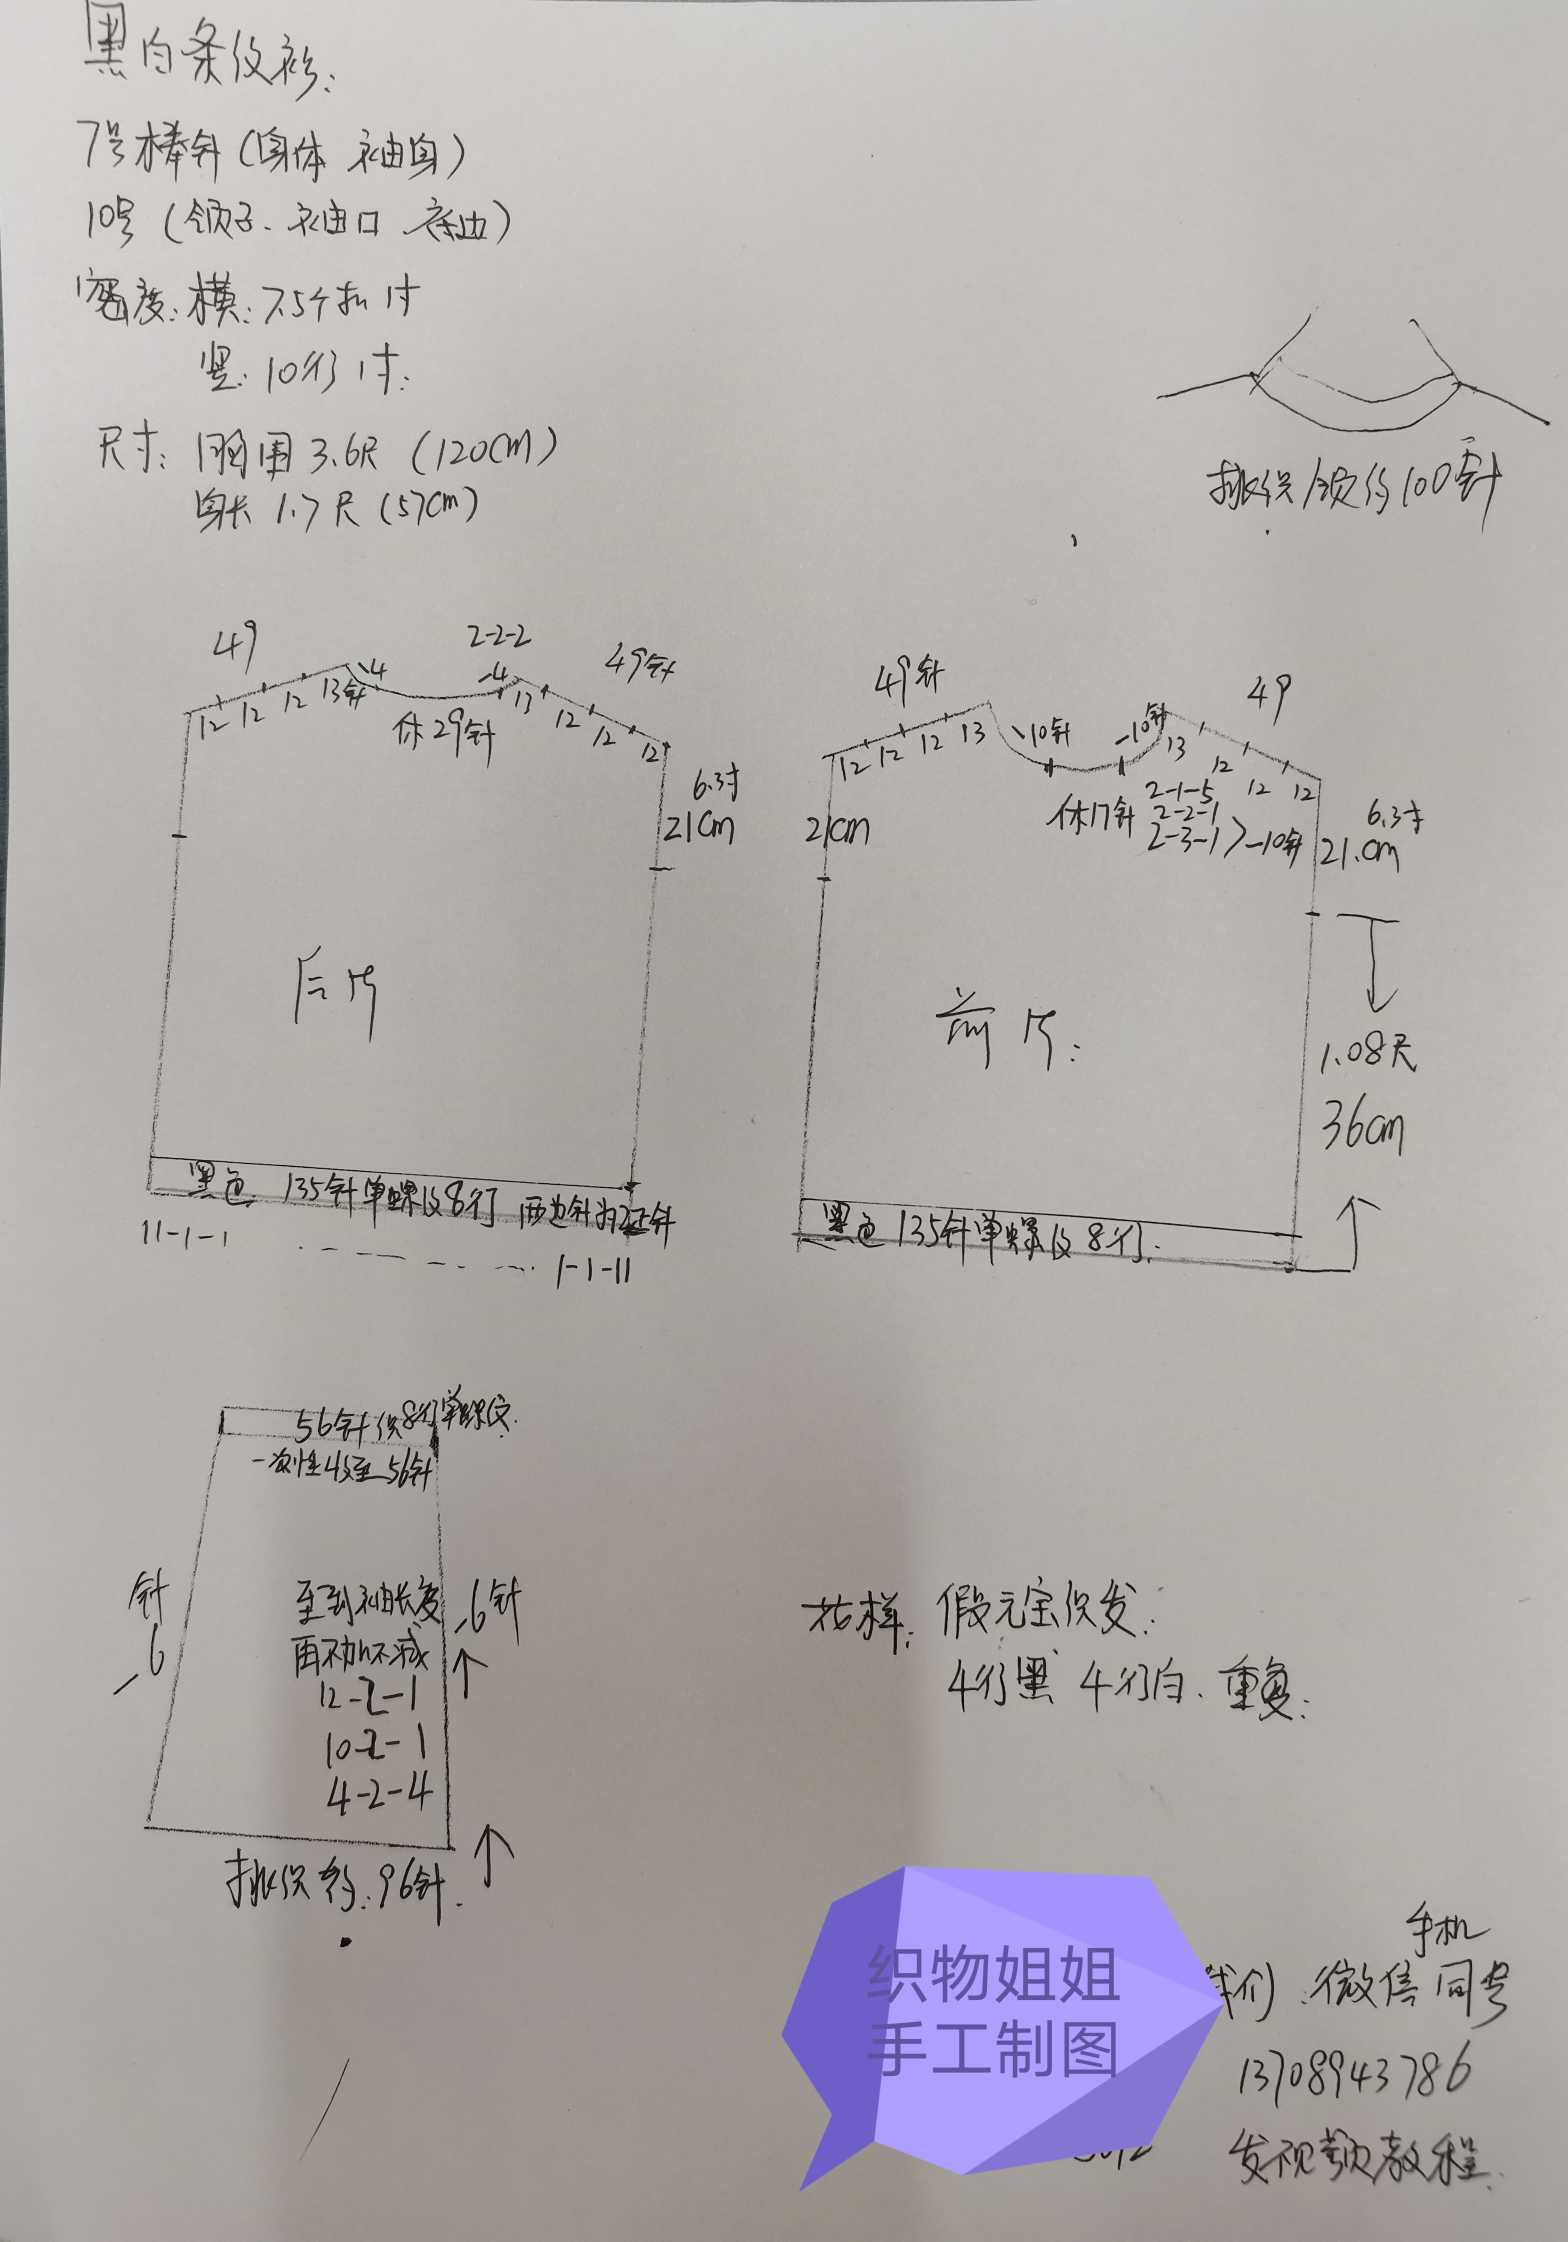 黑白条纹衫:
7号棒针(身体 袖身)
10号(领子.袖口 底边)
密度:横:7.5个扣1寸
竖:10行1寸:
尺寸:胸围3.6尺(120cm)
身长1.7尺(57cm)
挑织领约100针
49
-4
2-2-2
-4
49针
12 12 12 13针
休29针
13 12 12 12
6.3寸
21cm
后片
黑色 135针单螺纹8行 两边针为2正针
11-1-1
1-1-11
49针
-10针
-10针
49
12 12 12 13
13 12 12 12
休17针
2-1-5
2-2-1
2-3-1>-10针
21cm
6.3寸
21.cm
前片:
1.08尺
36cm
黑色135针单螺纹8行.
56针织8行单螺纹.
一次性收至56针
针
-6
至到袖长度
再不加不减
-6针
12-2-1
10-2-1
4-2-4
挑织约:96针.
花样:假元宝织发:
4行黑 4行白.重复:
织物姐姐
手工制图
手机
我们:微信同号
13708943786
发视频教程.